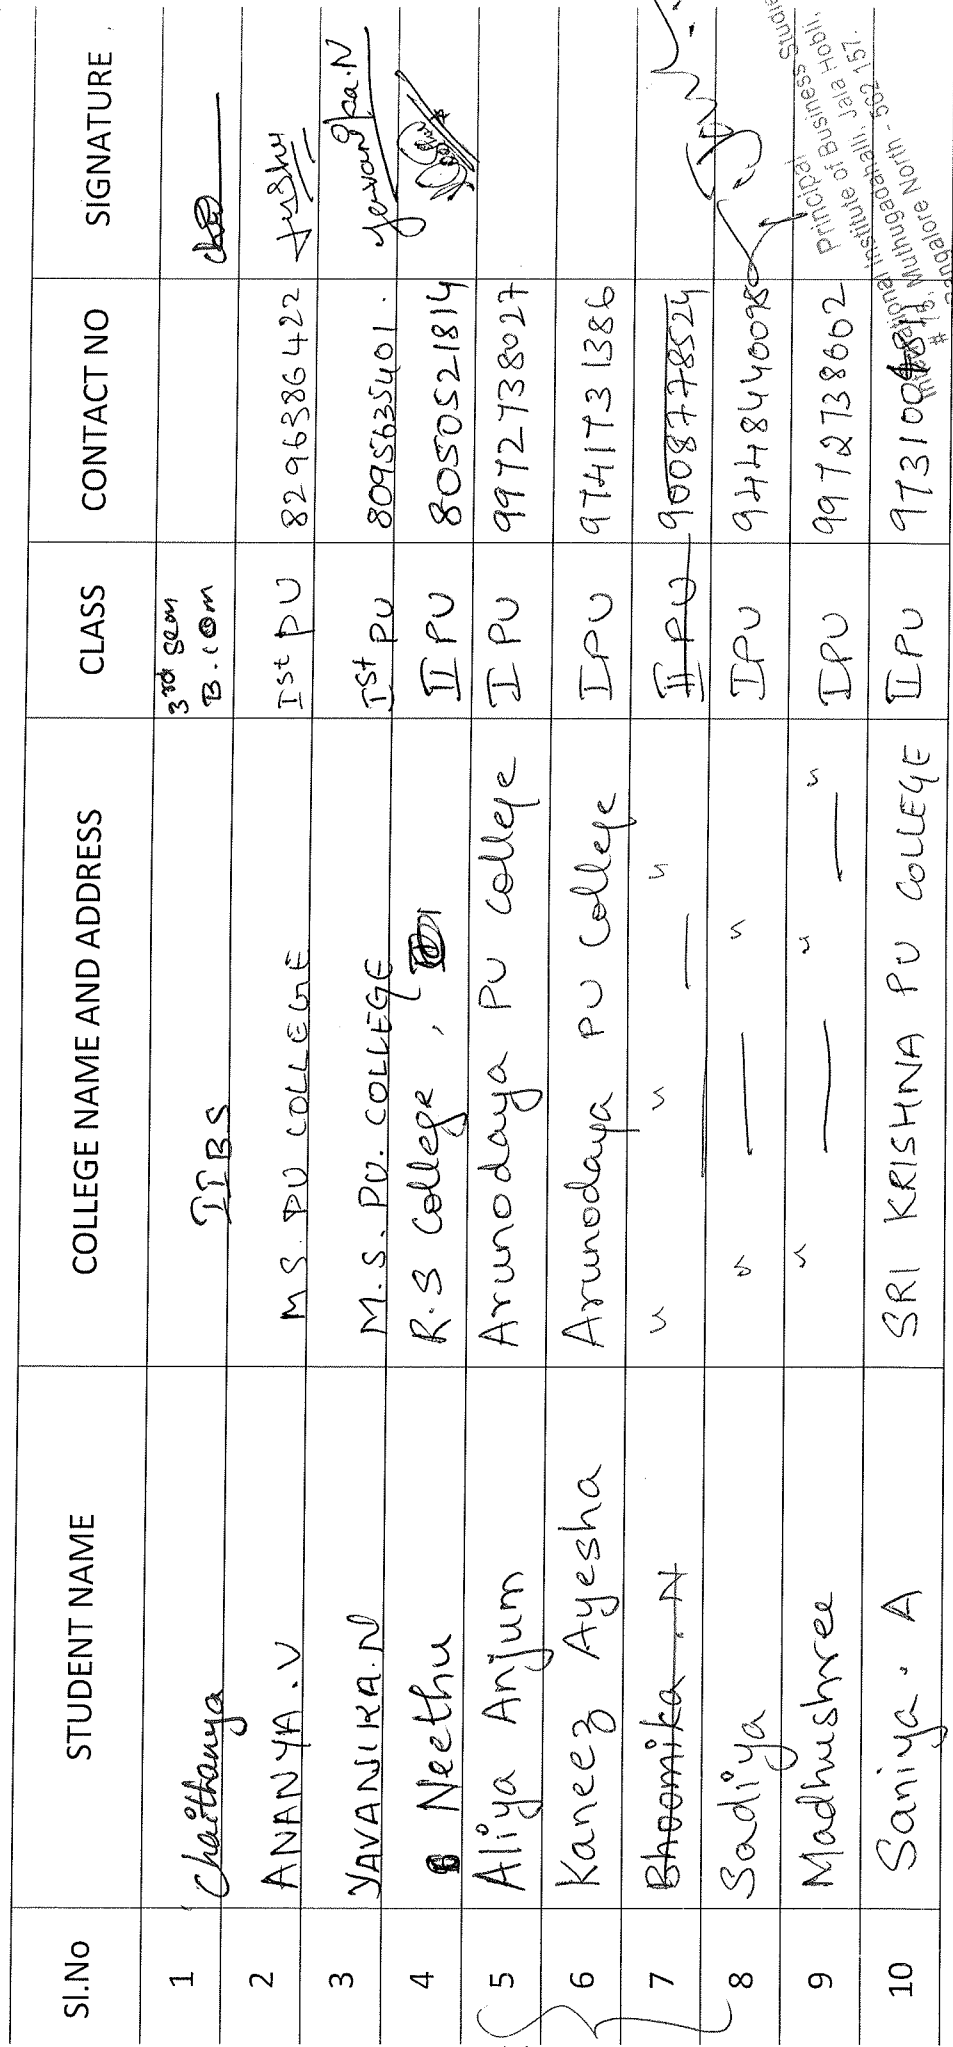 Sl.No STUDENT NAME COLLEGE NAME AND ADDRESS CLASS CONTACT NO SIGNATURE
1 Chaithanya IIBS 3rd sem B.com
2 ANANYA.V M.S. PU COLLEGE Ist PU 8296386422
3 YAVANIKA.N M.S. PU. COLLEGE Ist PU 8095635401. Yavanika.N
4 Neethu R.S College, II PU 8050521814
5 Aliya Anjum Arunodaya PU College I PU 9972738027
6 Kaneez Ayesha Arunodaya PU College I PU 9741731386
7 Bhoomika.N " " — " II PU 9008778524
8 Sadiya " — " IPU 9448440098
9 Madhushree " — " — " IPU 9972738602
10 Saniya. A SRI KRISHNA PU COLLEGE II PU
Principal
International Institute of Business Studies
Muthugadahalli, Jala Hobli,
Bangalore North - 562 157.